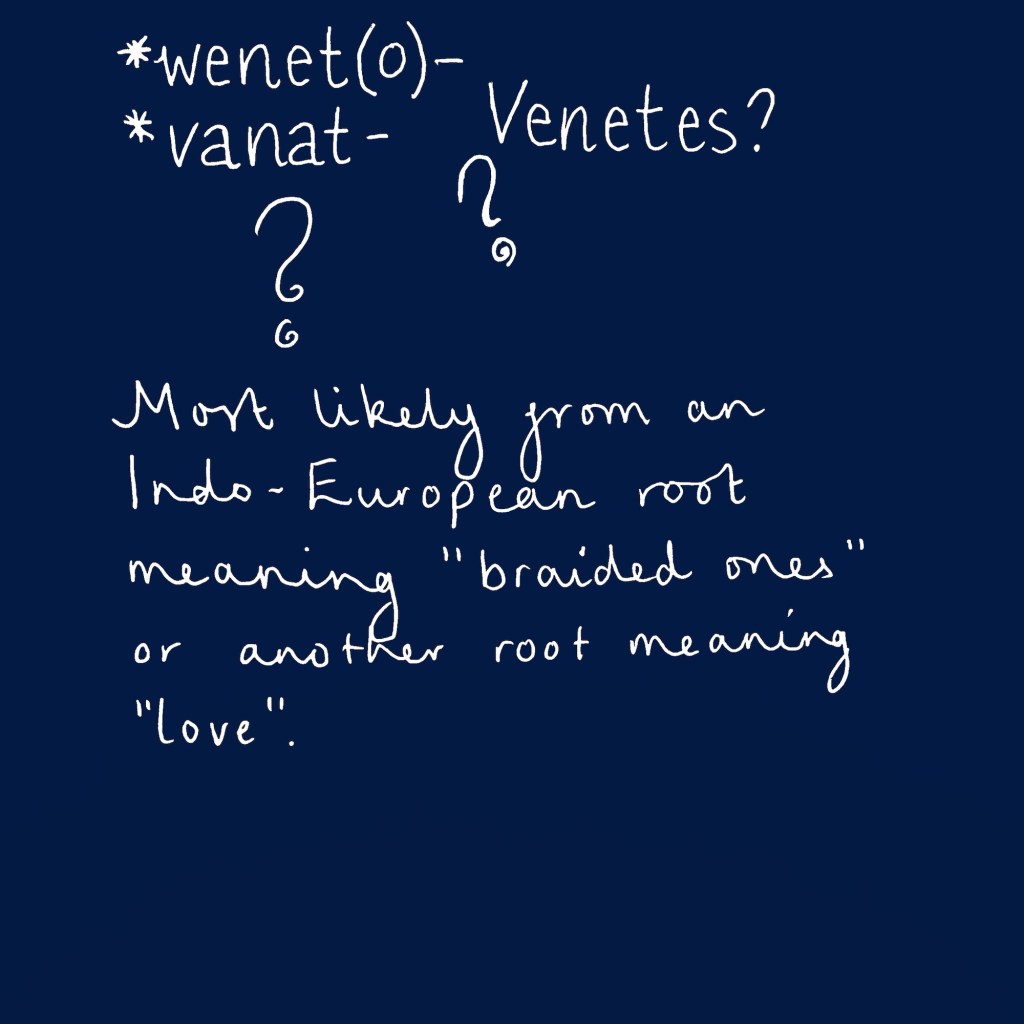 *wenet(o)-
*vanat-
Venetes?
?
?
Most likely from an
Indo-European root
meaning "braided ones"
or another root meaning
"love".